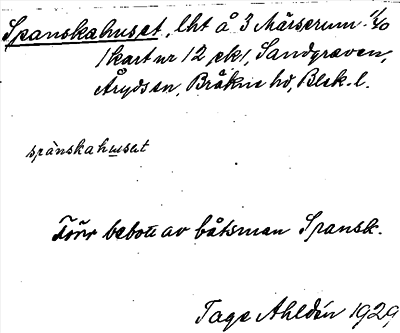 Spanskahuset, lht å 3 Mårserum 11/60
/kart nr 12 ek/, Sandgraven,
Åryds sn, Bräkne hd, Blek. l.
spànskahuset
Förr bebott av båtsman Spansk.
Tage Ahldén 1929